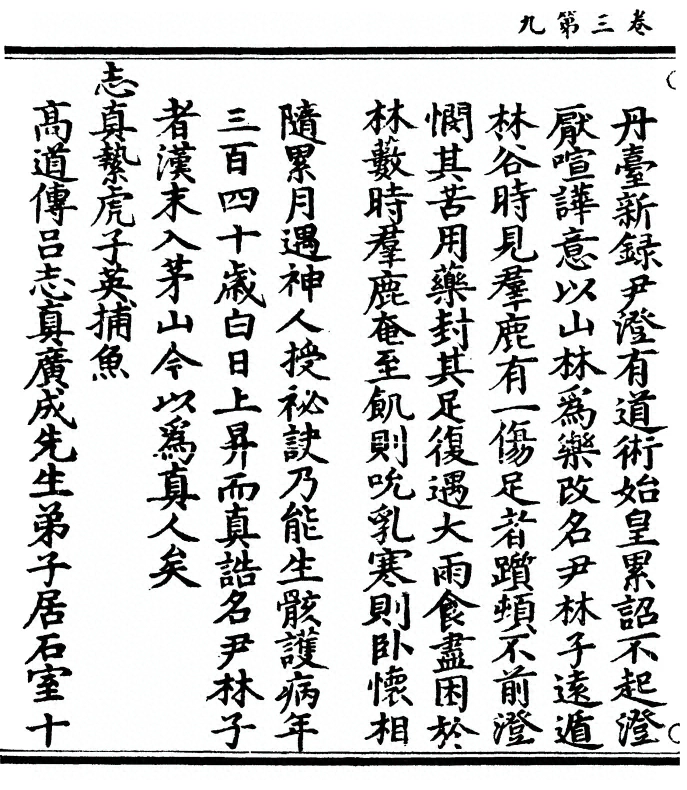 卷三第九
丹臺新録尹澄有道術始皇累詔不起澄
厭喧譁意以山林爲樂改名尹林子遠遁
林谷時見羣鹿有一傷足者躓頓不前澄
憫其苦用藥封其足復遇大雨食盡困於
林藪時羣鹿奄至飢則吮乳寒則卧懷相
隨累月遇神人授祕訣乃能生骸護病年
三百四十歲白日上昇而真誥名尹林子
者漢末入茅山今以爲真人矣
志真縶虎子英捕魚
高道傳吕志真廣成先生弟子居石室十